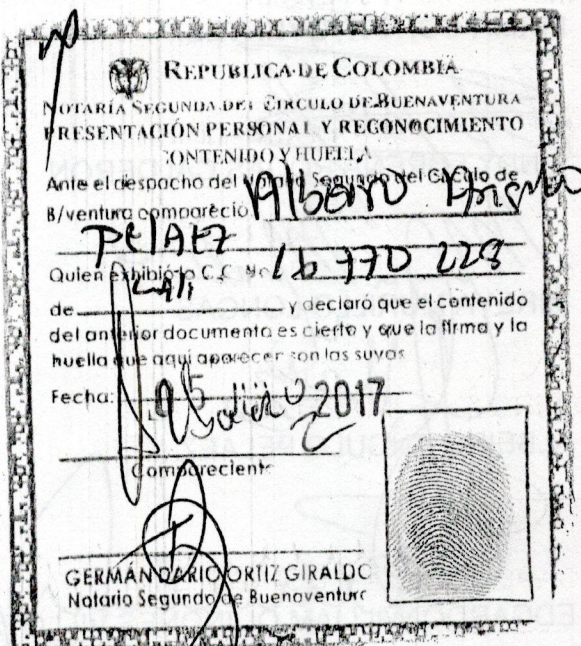 REPUBLICA DE COLOMBIA
NOTARÍA SEGUNDA DEL CIRCULO DE BUENAVENTURA
PRESENTACIÓN PERSONAL Y RECONOCIMIENTO
CONTENIDO Y HUELLA
Ante el despacho del Notario Segundo del Circulo de
B/ventura compareció Alberto
PELAEZ
Quien exhibió la C.C. No. 16 770 228
de Cali y declaró que el contenido
del anterior documento es cierto y que la firma y la
huella que aquí aparecer son las suyas
Fecha: 2017
Compareciente
GERMÁN DARIO ORTIZ GIRALDO
Notario Segundo de Buenaventura